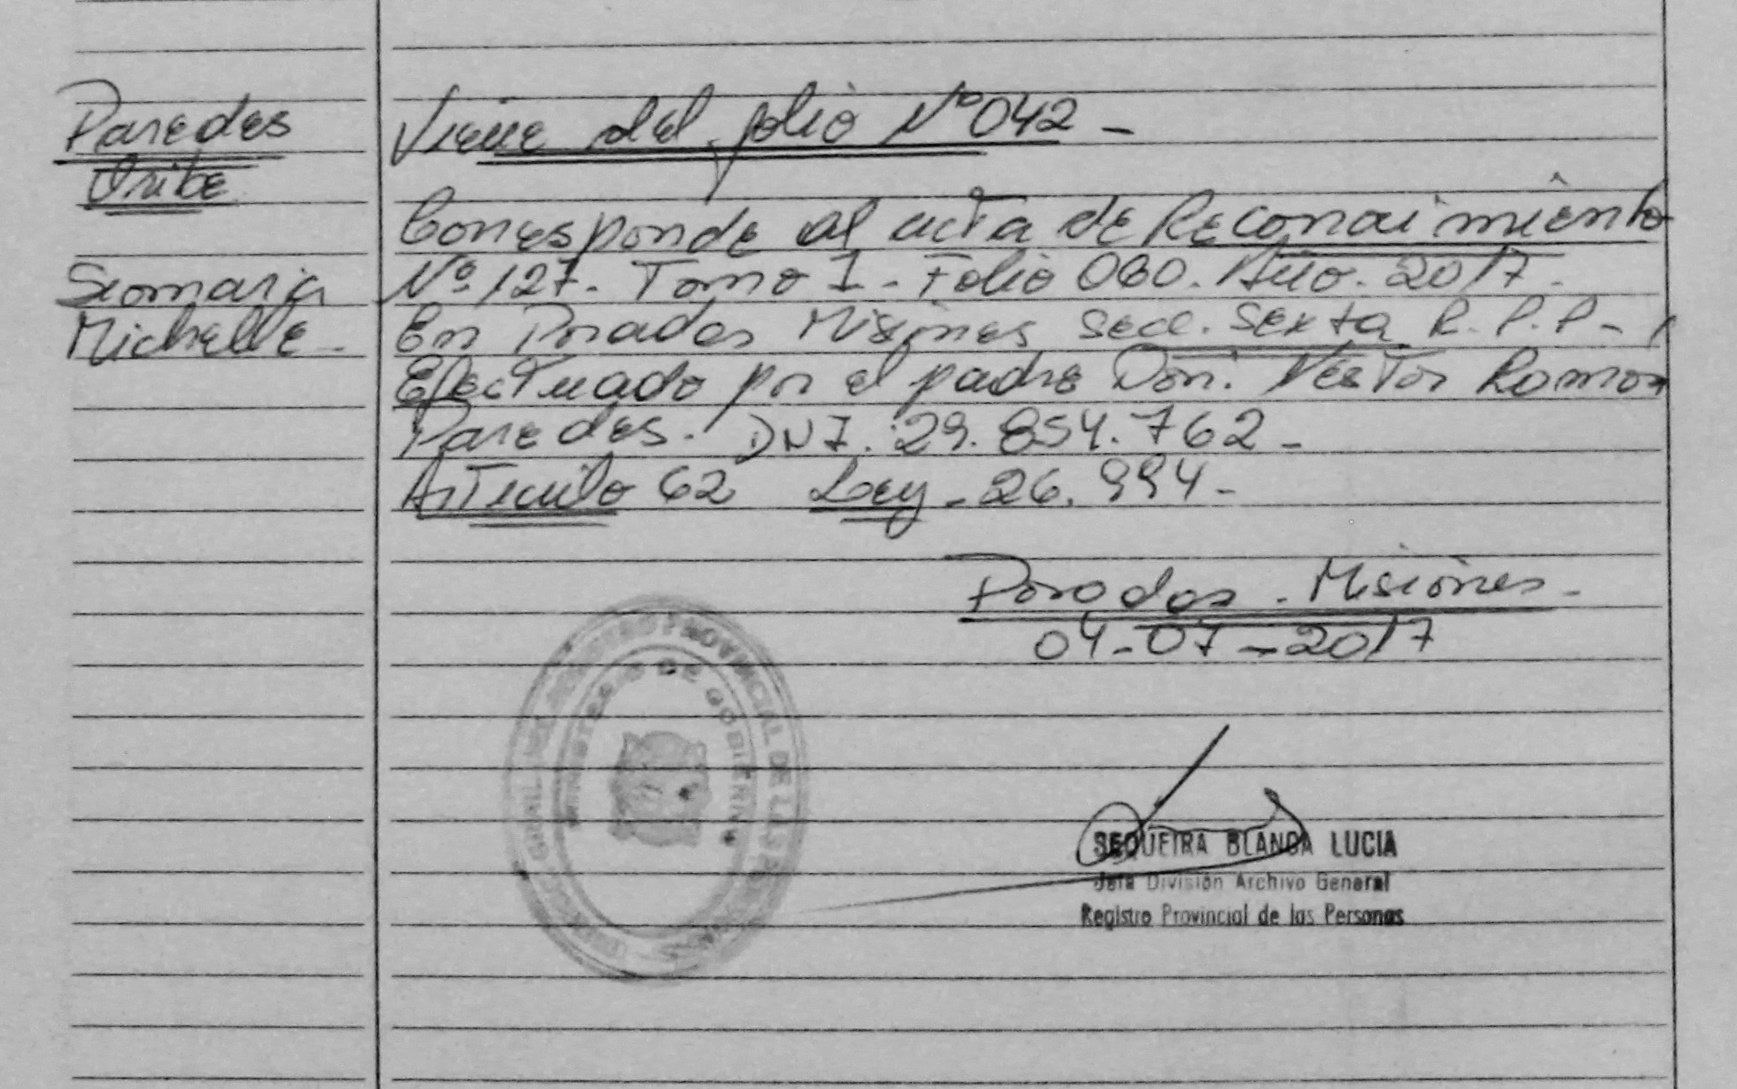 Paredes
Uribe
Siomara
Michelle -
Viene del folio Nº 042 -
Corresponde al acta de Reconocimiento
Nº 127. Tomo I - Folio 060. Año. 2017.
En Posadas Misiones Secc. Sexta R. P. P -
Efectuado por el padre Don. Néstor Ramon
Paredes. DNI. 29.854.762 -
Artículo 62 Ley - 26.994 -
Posadas - Misiones -
04-07-2017
REGISTRO PROVINCIAL DE LAS PERSONAS
MINISTERIO DE GOBIERNO
SEQUEIRA BLANCA LUCIA
Jefa División Archivo General
Registro Provincial de las Personas